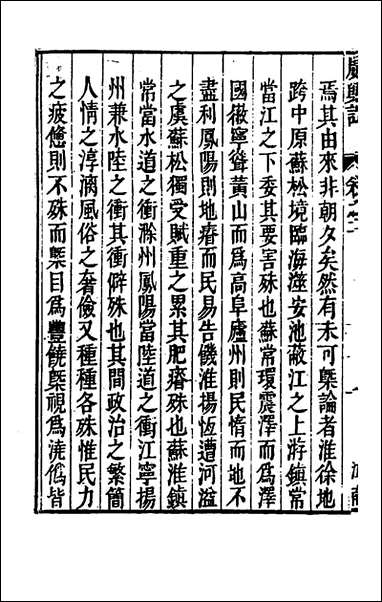 焉其由來非朝夕矣然有未可槩論者淮徐地
跨中原蘇松境臨海滋安池蔽江之上游鎮常
當江之下委其要害殊也蘇常環震澤而爲澤
國徽寧聳黃山而爲高阜廬州則民惰而地不
盡利鳳陽則地瘠而民易告饑淮揚恆遭河溢
之虞蘇松獨受賦重之累其肥瘠殊也蘇淮鎮
常當水道之衝滁州鳳陽當陸道之衝江寧揚
州兼水陸之衝其衝僻殊也其間政治之繁簡
人情之淳漓風俗之奢儉又種種各殊惟民力
之疲憊則不殊而槩目爲豐饒槩視爲澆僞皆